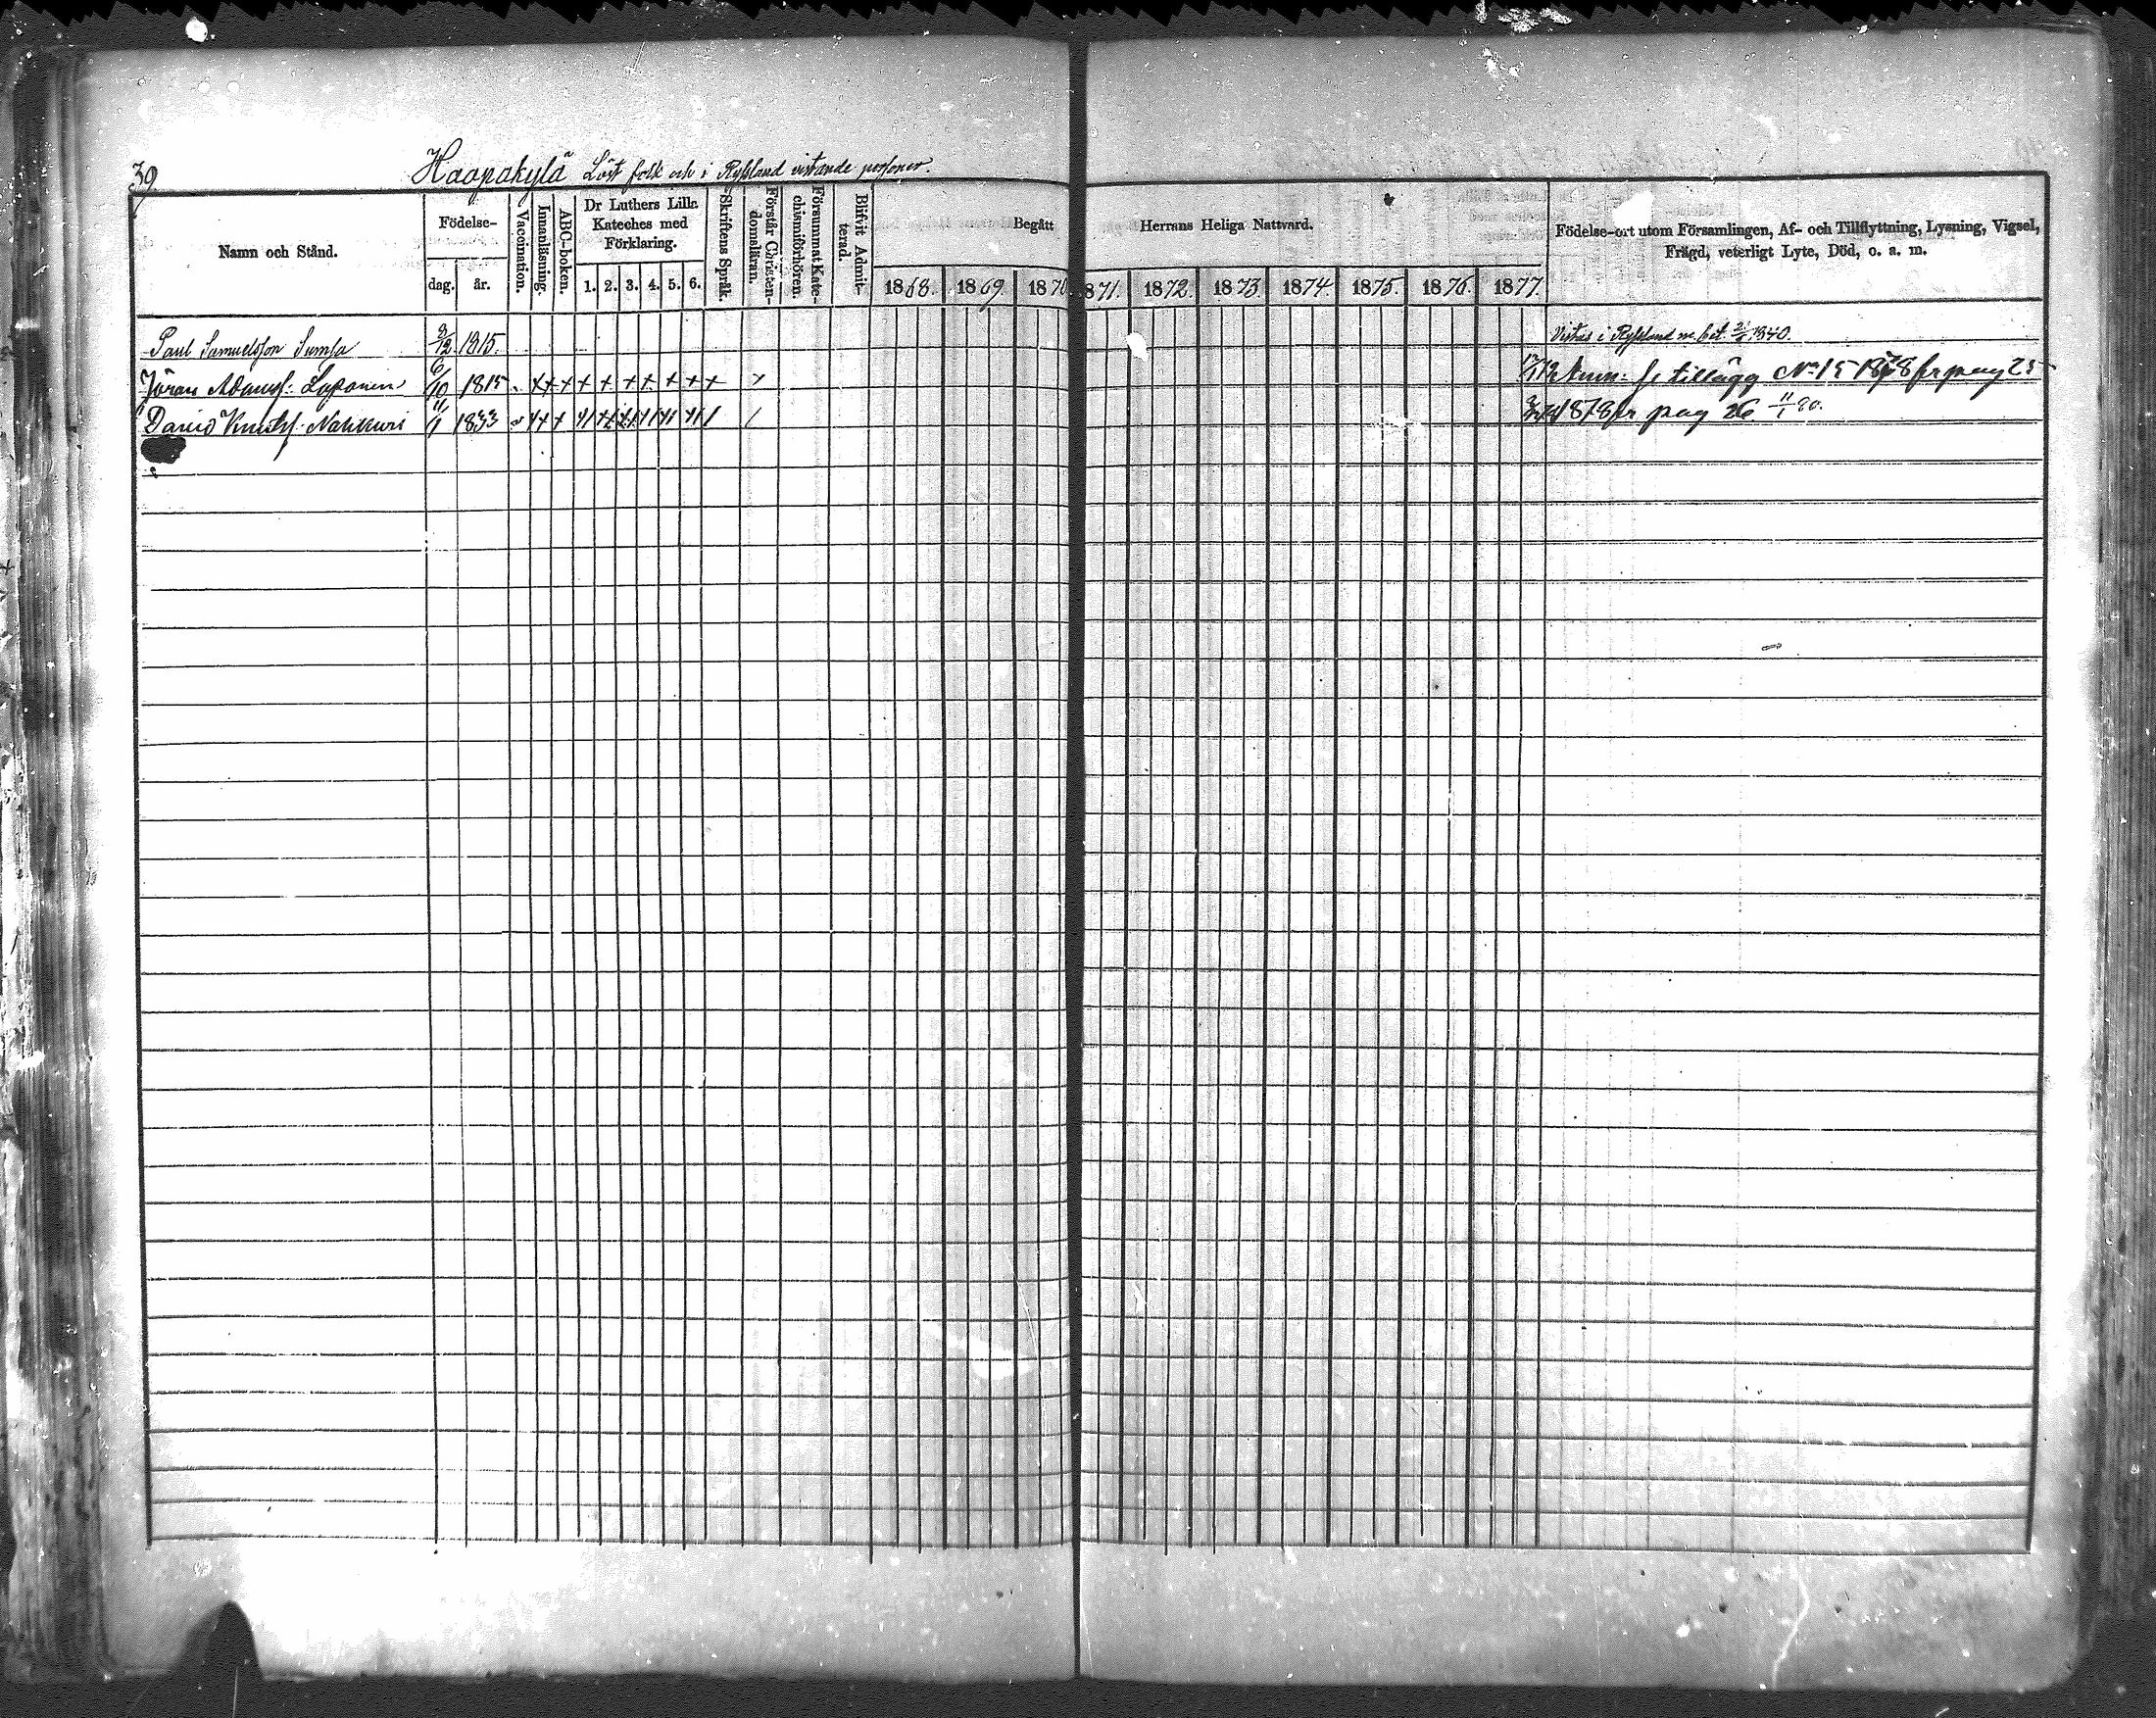 39.
Haapakylä Löst folk och i Ryssland vistande personer.
Namn och Stånd.
Födelse-
dag.
år.
Vaccination.
Innanläsning.
ABC-boken.
Dr Luthers Lilla
Kateches med
Förklaring.
1. 2. 3. 4. 5. 6.
Skriftens Språk.
Förstår Christen-
domsläran.
Försummat Kate-
chismiförhören.
Blifvit Admit-
terad.
Begått Herrans Heliga Nattvard.
1868. 1869. 1870 871. 1872. 1873. 1874. 1875. 1876. 1877.
Födelse-ort utom Församlingen, Af- och Tillflyttning, Lysning, Vigsel,
Frägd, veterligt Lyte, Död, o. a. m.
Paul Samuelsson Sumsa 9/12 1815. Vistas i Ryssland m. bet. 1840.
Jöran Adamss: Laponen 6/10 1815 + + + + + + + + + + tillägg No 15 1878 fr pag 25
David 11/1 1833 1878 fr pag 26 11/1 80.